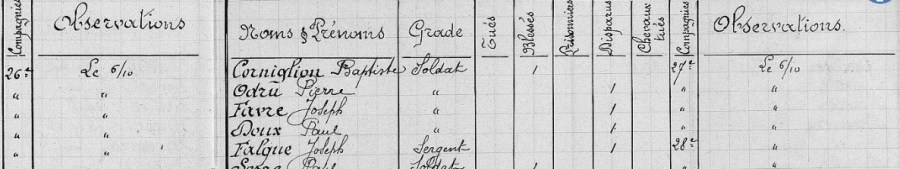 Compagnies Observations Noms & Prénoms Grade Tués Blessés Prisonniers Disparus Chevaux tués Compagnies Observations.
26e Le 6/10 Corniglion Baptiste Soldat 1 27e Le 6/10
" " Odru Pierre " 1 " "
" " Favre Joseph " 1 " "
" " Doux Paul " 1 " "
" " Falque Joseph Sergent 1 28e "
" Soldat 1 " "